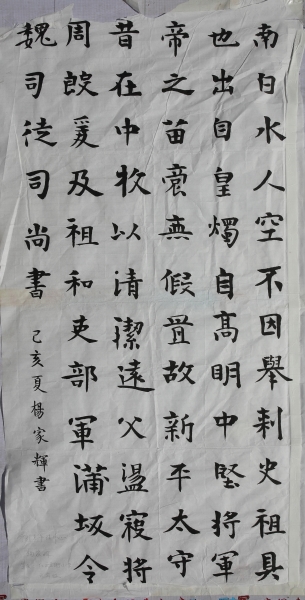 南日水人空不因舉刺史祖具
也出自皇燭自高明中堅將軍
帝之苗裔無假置故新平太守
昔在中牧以清潔遠父盪寇將
周殷爰及祖和吏部軍蒲坂令
魏司徒司尚書
己亥夏楊家輝書